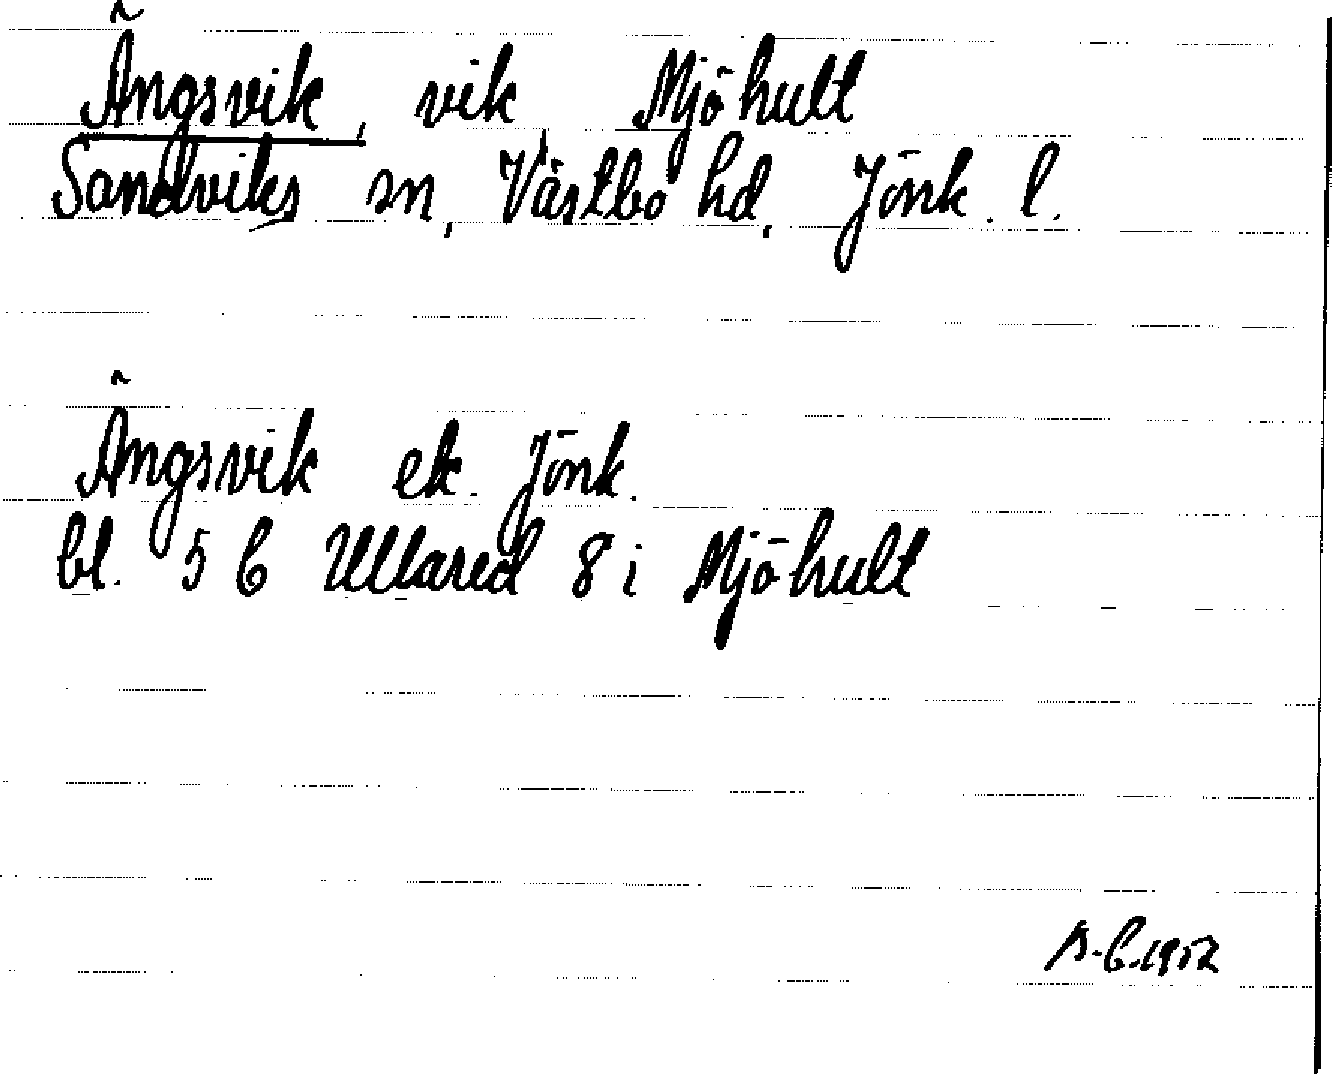 Ängsvik, vik Mjöhult
Sandviks sn, Västbo hd, Jönk. l.
Ängsvik ek. Jönk.
bl. 5 C Ullared 8 i Mjöhult
1952